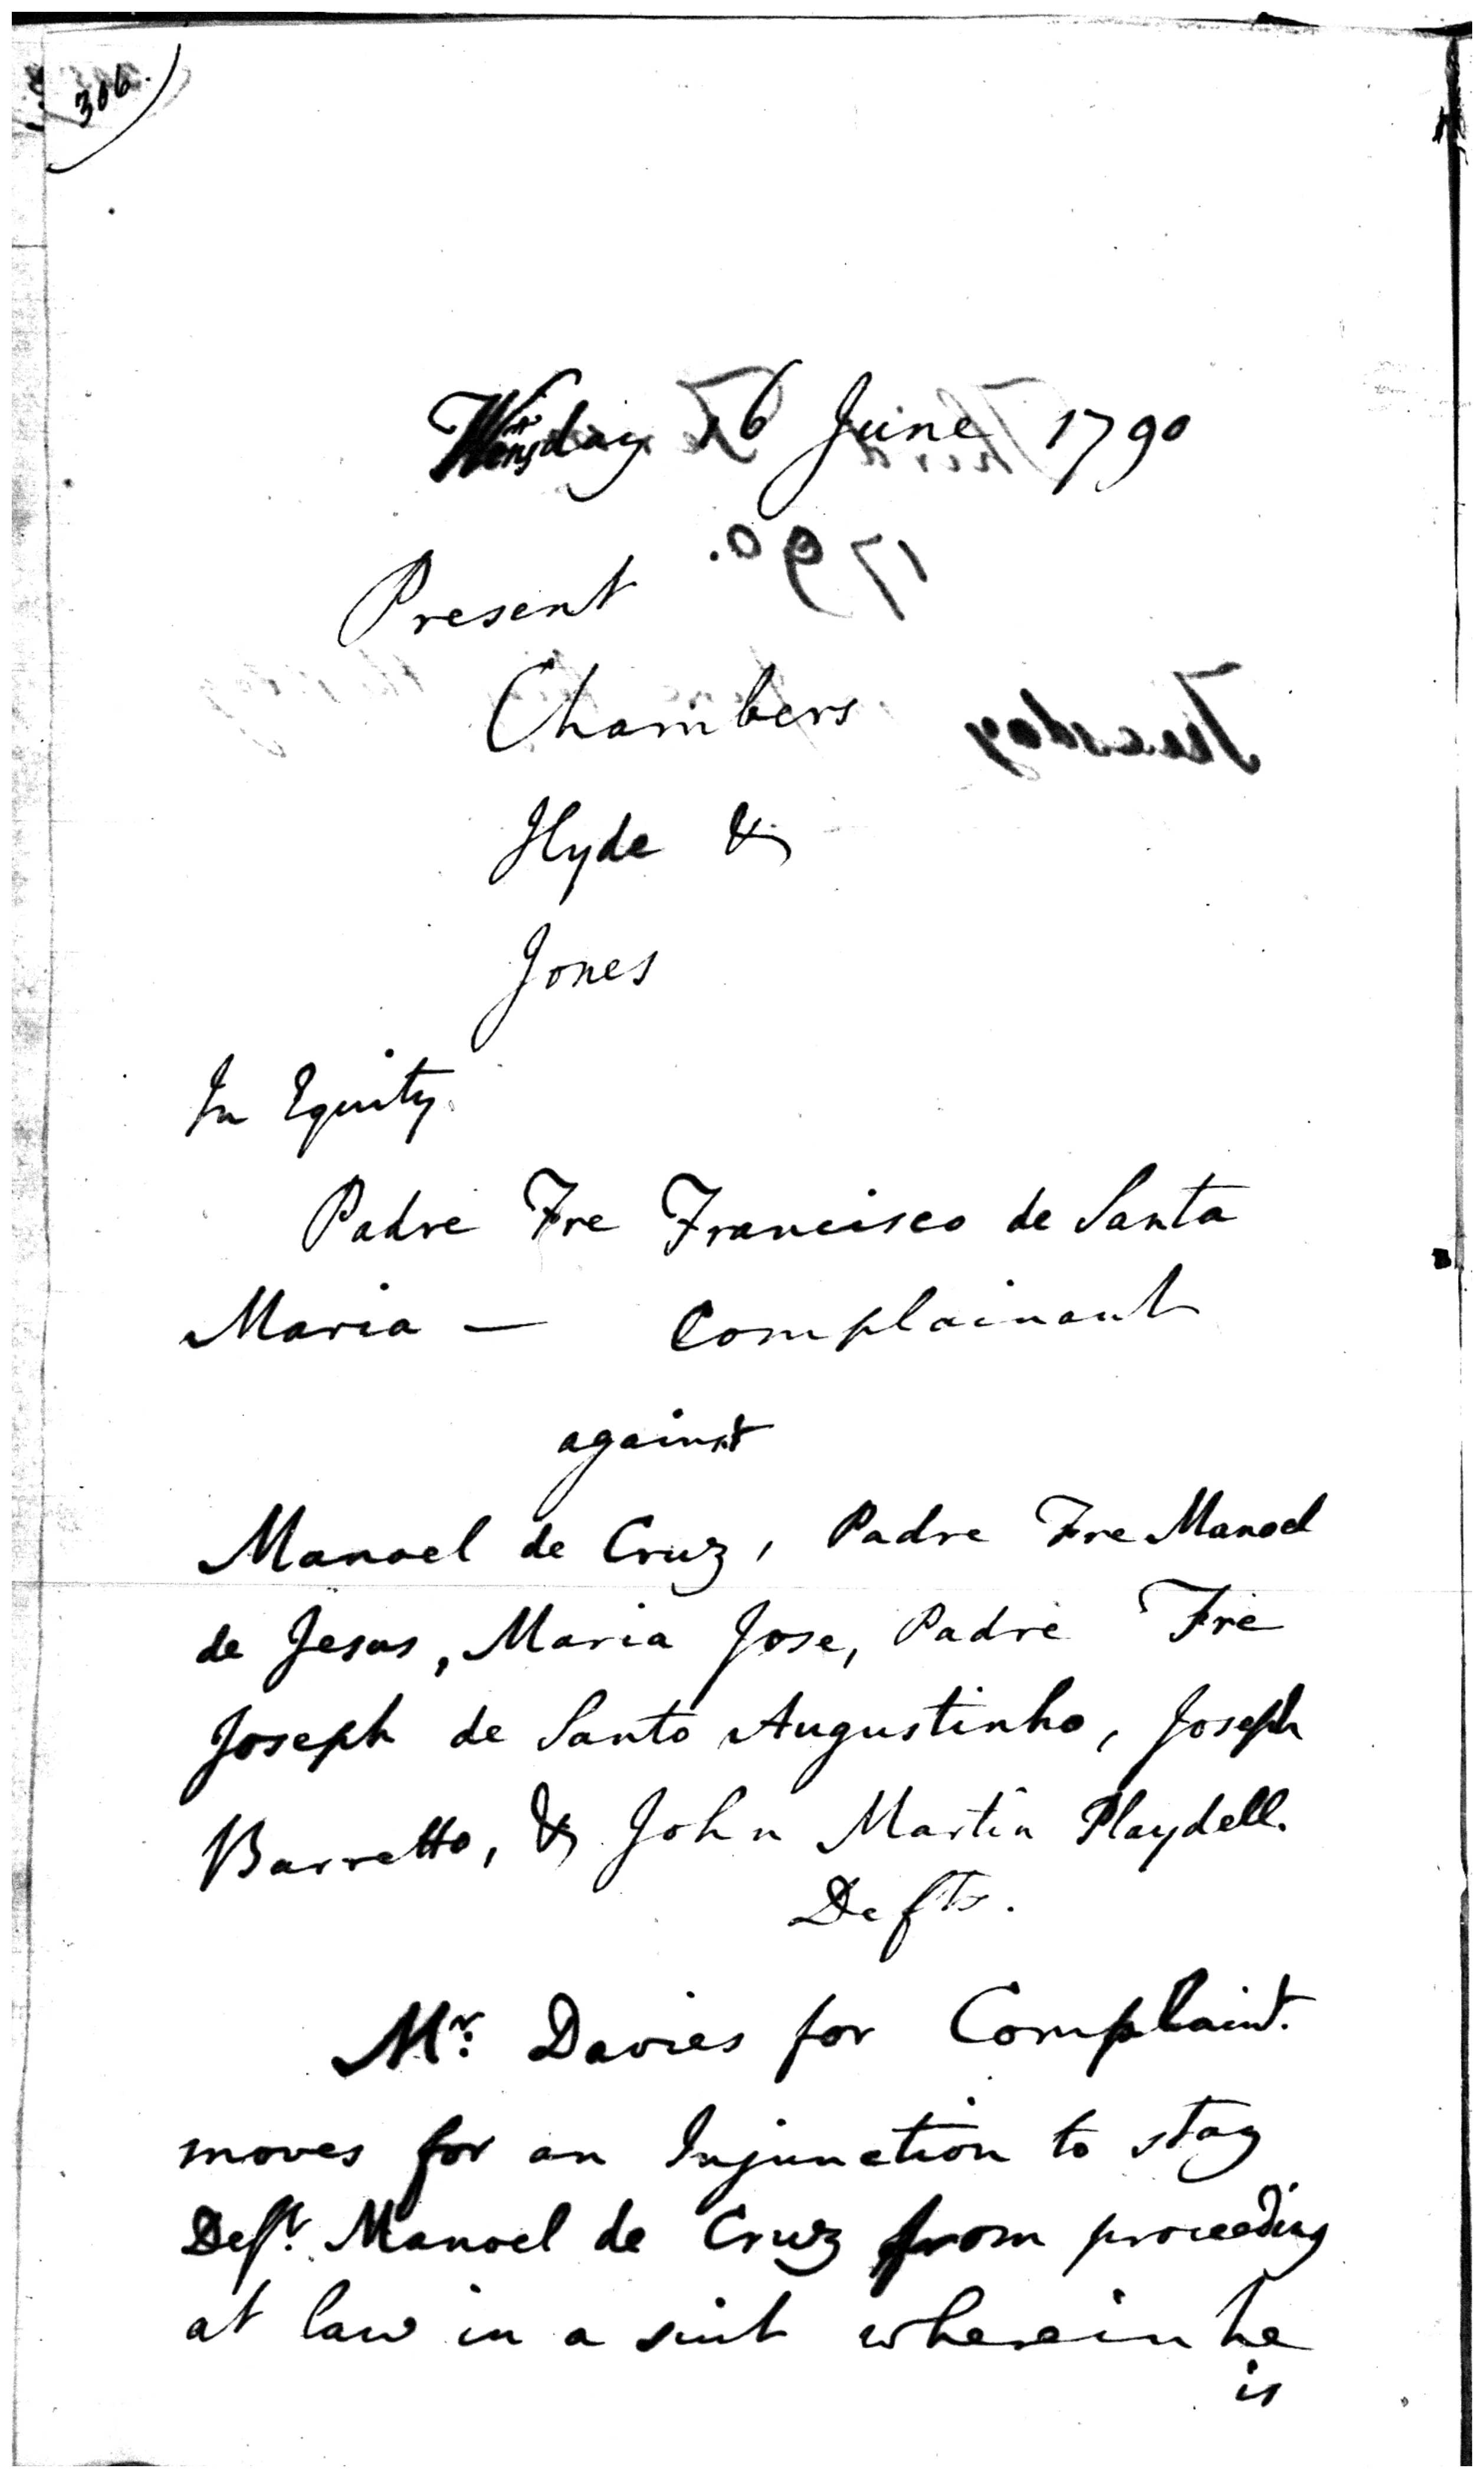 306.
Wensday 16 June 1790
Present
Chambers
Hyde &
Jones
In Equity
Padre Fre Francisco de Santa
Maria — Complainant
against
Manoel de Cruz, Padre Fre Manoel
de Jesus, Maria Jose, Padre Fre
Joseph de Santo Augustinho, Joseph
Barretto, & John Martin Playdell.
Defts.
Mr. Davies for Complaint.
moves for an Injunction to stay
Deft. Manoel de Cruz from proceeding
at law in a suit wherein he
is